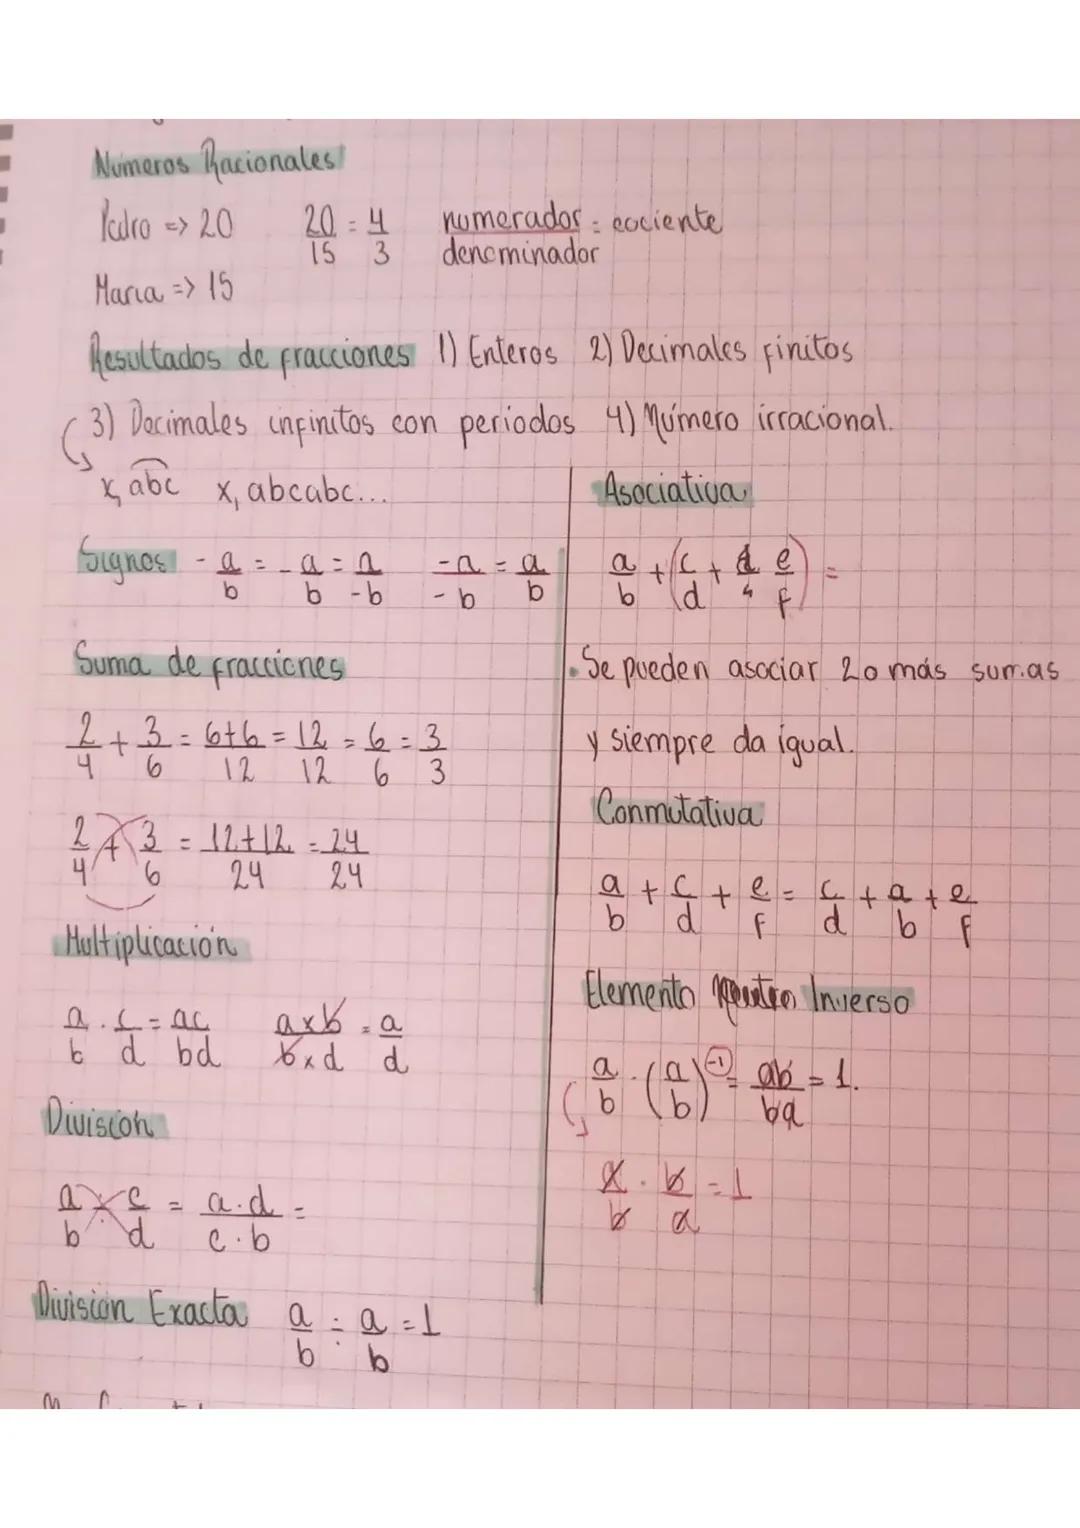 Números Racionales
Pedro => 20  20/15 = 4/3  numerador/denominador = cociente
María => 15
Resultados de fracciones 1) Enteros 2) Decimales finitos
3) Decimales infinitos con periodos 4) Número irracional.
x, abc x, abcabc...
Signos - a/b = -a/b = a/-b  -a/-b = a/b
Suma de fracciones
2/4 + 3/6 = 6+6/12 = 12/12 = 6/6 = 3/3
2/4 + 3/6 = 12+12/24 = 24/24
Multiplicación
a/b . c/d = ac/bd  axb/bxd = a/d
División
a/b : c/d = a.d/c.b =
División Exacta a/b : a/b = 1
Asociativa
a/b + (c/d + e/f) =
• Se pueden asociar 2 o más sumas
y siempre da igual.
Conmutativa
a/b + c/d + e/f = c/d + a/b + e/f
Elemento Inverso
a/b . (a/b)^-1 = ab/ba = 1.
a/b . b/a = 1